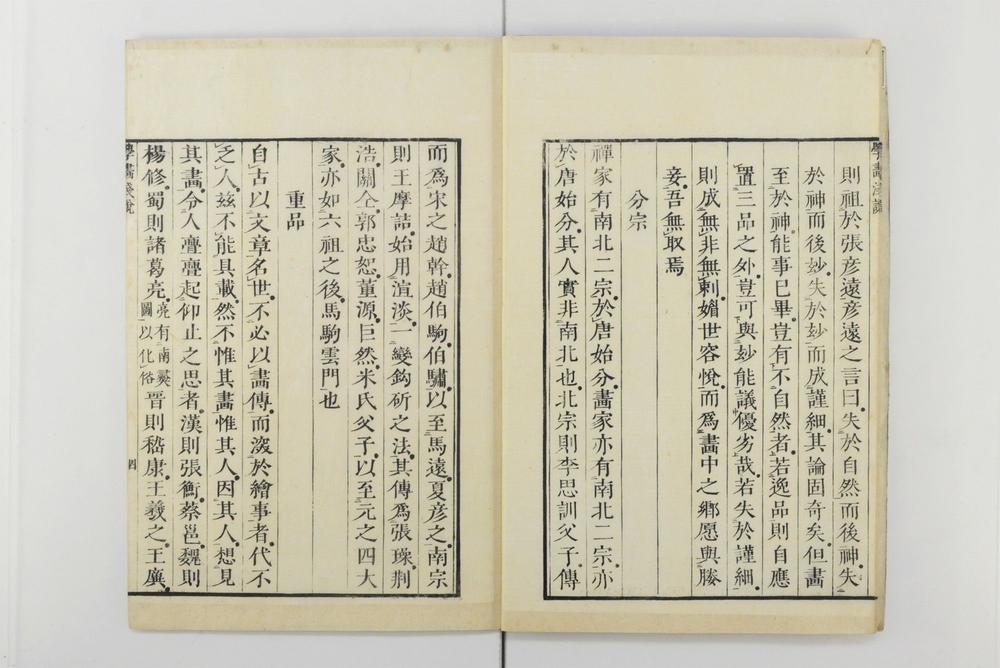 則祖於張彦遠彦遠之言曰失於自然而後神失
於神而後玅失於玅而成謹細其論固奇矣但畵
至於神能事已畢豈有不自然者若逸品則自應
置三品之外豈可與玅能議優劣哉若失於謹細
則成無非無刺媚世容悅而爲畵中之鄉愿與媵
妾吾無取焉
分宗
禪家有南北二宗於唐始分畵家亦有南北二宗亦
於唐始分其人實非南北也北宗則李思訓父子傳
而爲宋之趙幹趙伯駒伯驌以至馬遠夏彦之南宗
則王摩詰始用渲淡一變鈎斫之法其傳爲張璪荆
浩關仝郭忠恕董源巨然米氏父子以至元之四大
家亦如六祖之後馬駒雲門也
重品
自古以文章名世不必以畵傳而深於繪事者代不
乏人玆不能具載然不惟其畵惟其人因其人想見
其畵令人亹亹起仰止之思者漢則張衡蔡邕魏則
楊修蜀則諸葛亮亮有南彝圖以化俗晉則嵇康王羲之王廙
學畵淺說
四